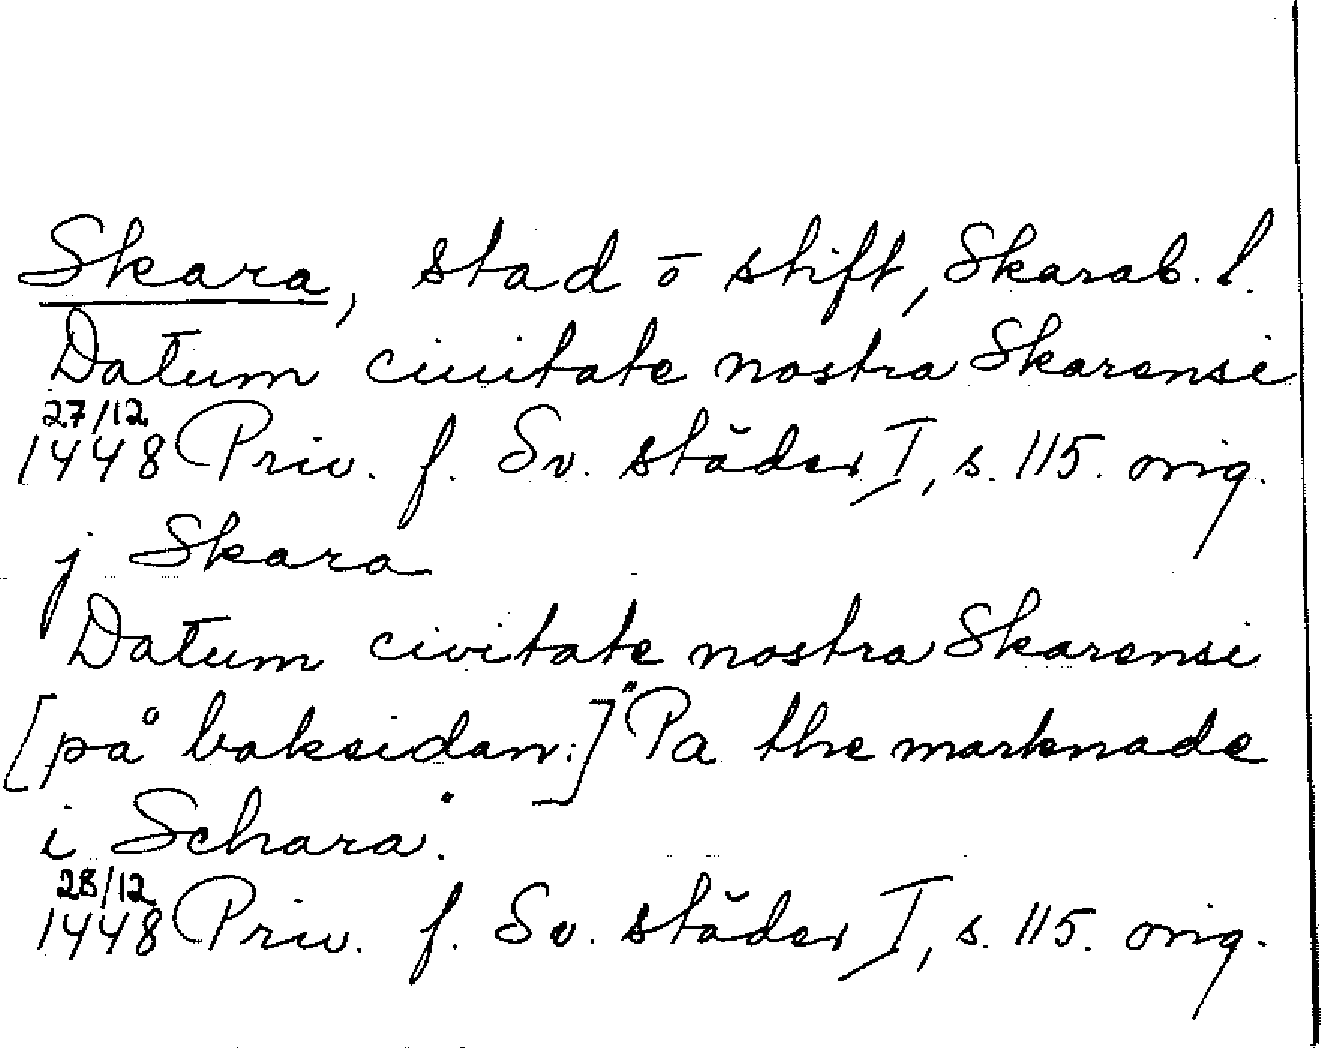 Skara, stad o stift, Skarab. l.
Datum ciuitate nostra Skarensi
27/12
1448 Priv. f. Sv. städer I, s. 115. orig.
j Skara
Datum civitate nostra Skarensi
[på baksidan:] "Pa the marknade
i Schara".
28/12
1448 Priv. f. Sv. städer I, s. 115. orig.